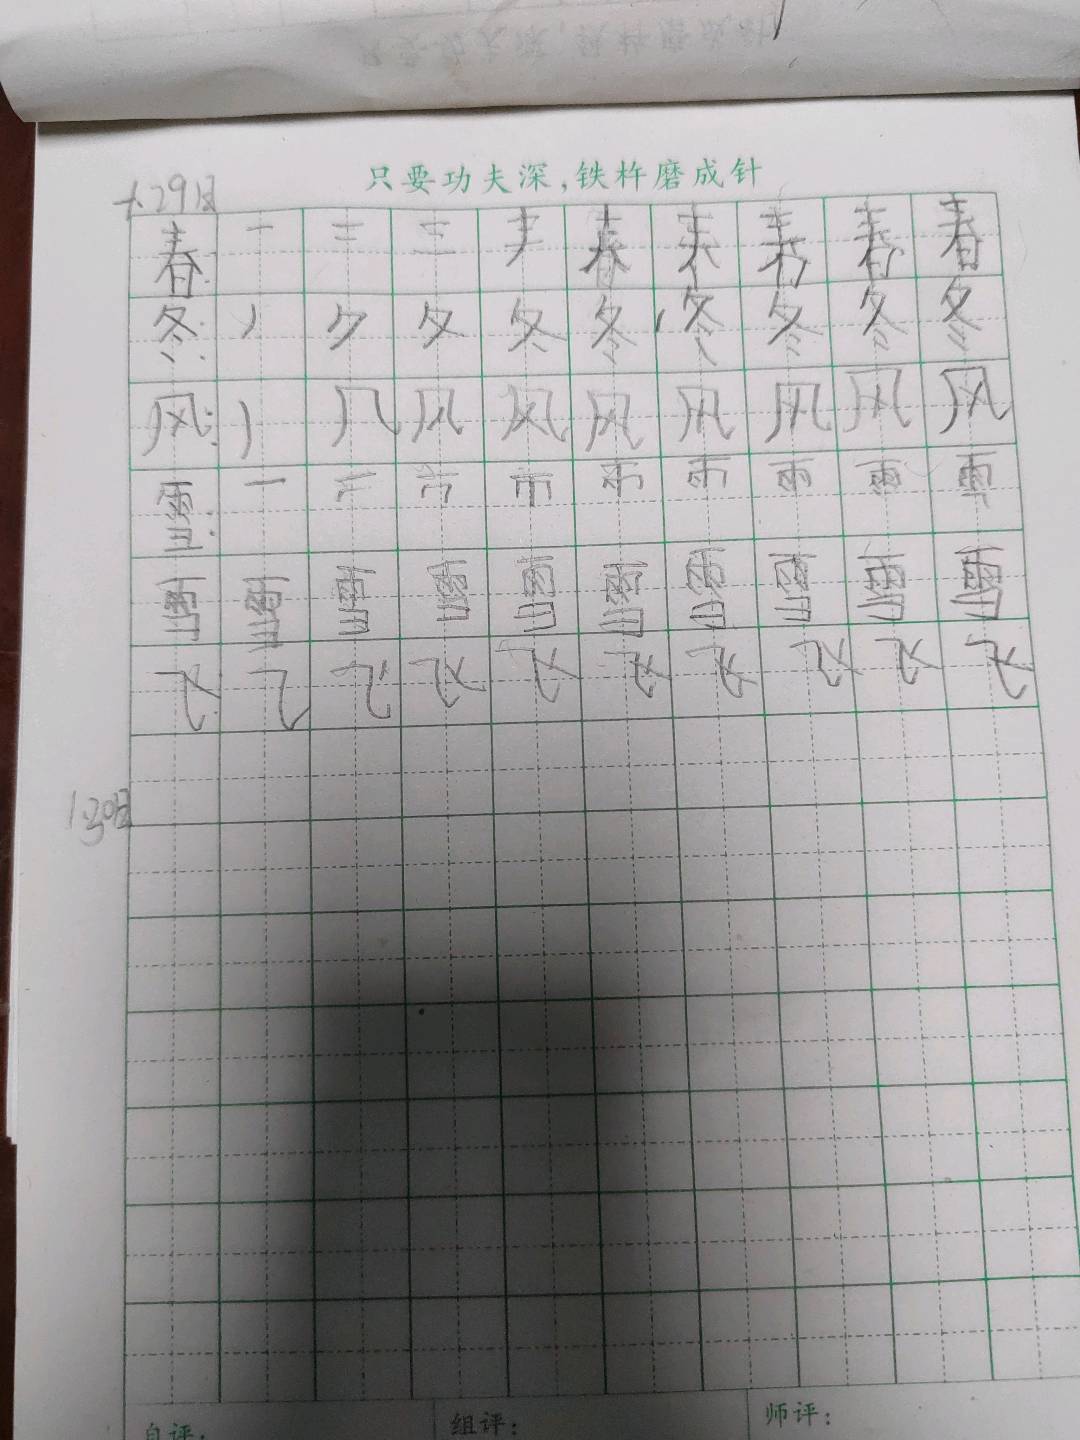 只要功夫深,铁杵磨成针
1.29日
春: 一 二 三 春 春 春 春
冬: 丿 夕 夂 冬 冬 冬 冬 冬 冬
风: 丿 几 风 风 风 风 风 风 风
雪: 一 雨 雨
雪 雪 雪 雪 雪 雪 雪 雪 雪 雪
飞 乁 飞 飞 飞 飞 飞 飞 飞 飞
1.30日
自评: 组评: 师评: